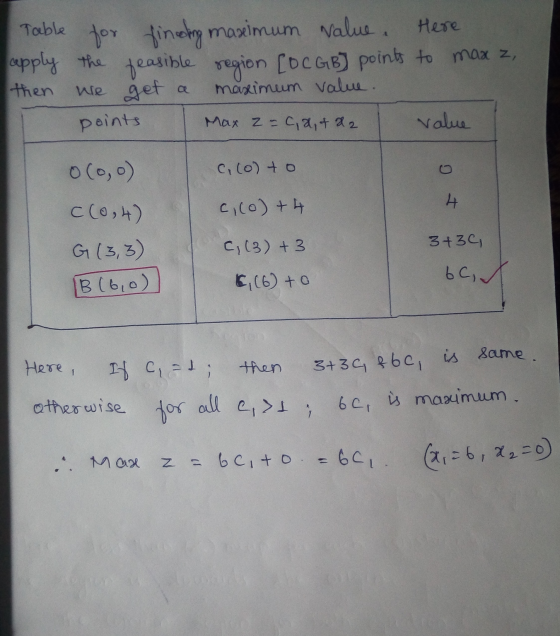 Table for finding maximum value. Here
apply the feasible region [OCGB] points to max z,
then we get a maximum value.
points Max z = C₁x₁ + x₂ value
O(0,0) C₁(0) + 0 0
C(0,4) C₁(0) + 4 4
G(3,3) C₁(3) + 3 3+3C₁
B(6,0) C₁(6) + 0 6C₁ ✓
Here, If C₁ = 1; then 3+3C₁ & 6C₁ is same.
otherwise for all C₁>1; 6C₁ is maximum.
∴ Max z = 6C₁ + 0 = 6C₁. (x₁=6, x₂=0)